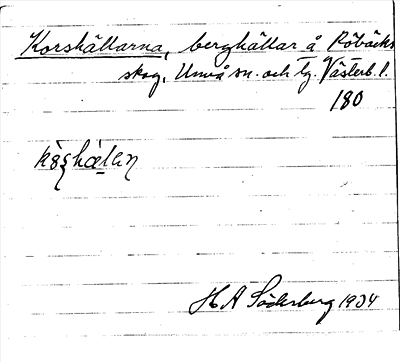 Korshällarna, berghällar å Röbäcks
skog, Umeå sn. och tg. Västerb. l.
180
H A Söderberg 1934